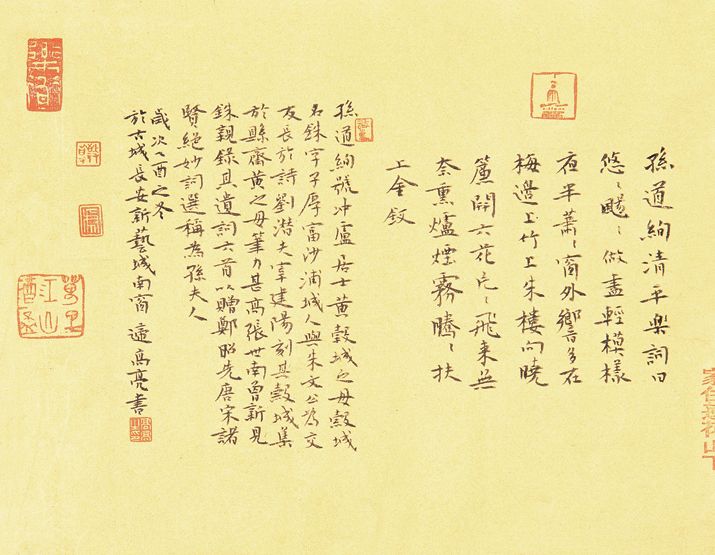 孫道絢清平樂詞曰
悠々颺々做盡輕模樣
夜半蕭々窗外響多在
梅邊上竹上朱樓向曉
簾開六花片々飛來無
奈熏爐煙霧騰々扶
上金釵
孫道絢號沖虛居士黃穀城之母穀城
名銖字子厚富沙浦城人與朱文公為交
友長於詩劉潛夫宰建陽刻其穀城集
於縣齋黃之母筆力甚高張世南曾新見
銖親錄其遺詞六首以贈鄭昭先唐宋諸
賢絕妙詞選稱為孫夫人
歲次乙酉之冬
於古城長安新藝城南窗 遠高亮書
家住蓬萊山下